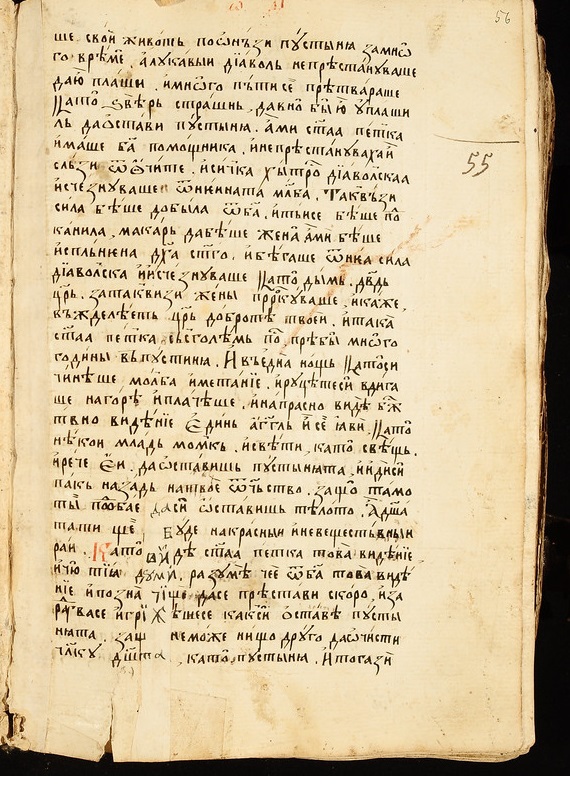 56
55
ше свой животь посѡнъзи пꙋстынѧ замнѡ
го врѣме. а лꙋкавыи дїаволь непрѣстанꙋваше
даю плаши, имнѡго пъти се прѣтвараше
като ѕвѣрь страшнь, давно бы ю ꙋплаши
ль даѡстави пꙋстынѧ. ами ст҃аа петка
имаше ба҃ помощника, инепрѣстанꙋвахаи
слъзи ѿ ѻчите, исичка хытро дїаволскаа
исчезнꙋваше ѿ нинната мл҃ба. Таквъзи
сила бѣше добыла ѿ б҃а, и
канила, макарь дабѣше жена ами бѣше
испльнена дх҃а ст҃го, ибѣгаше ѿ неа сила
дїаволска иисчезнꙋваше като дымь. дв҃дь
цр҃ь. затаквизи жены прр҃кꙋваше, икаже,
въжделѣеть цр҃ь добротѣ твоеи, итака
ст҃аа петка съсголѣмь по прѣбы мнѡго
годины въпꙋстинѧ. И въедна нощь катоси
чинѣше молба иметанїе, ирꙋцѣтеси вдига
ше нагорѣ иплачѣше, инапрасно видѣ бж҃
твно видѣнїе Единь агг҃ль исе ꙗви. като
нѣкои младь момкь, исвѣти, като свѣщь.
ирече Еи, даѡставишь пꙋстынѧта, иидиси
пакь назадь на ѿчьство. защо тамо
ты подобае даси ѡставишь тѣлото, Адш҃а
тати ще бꙋде накрасныи иневещественыи
раи. Като видѣ ст҃аа петка това видѣнїе
ичю тїѧ дꙋми, разꙋмѣ че е ѿ б҃а това видѣ
нїе ипозна чїще дасе прѣстави скоро, иза
ра васе игриж ѣшесе какси оставѣ пꙋсты
нѧта. защ неможе нищо дрꙋго даѡчисти
чл҃кꙋ дш҃ата, като пꙋстынѧ. Итогази